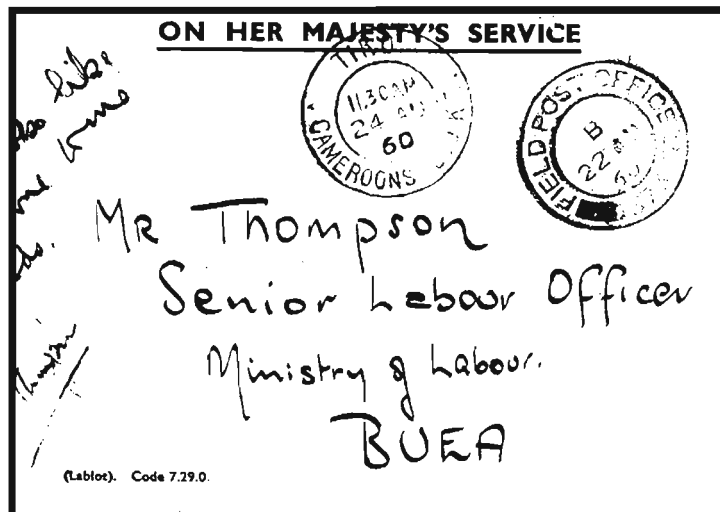 ON HER MAJESTY'S SERVICE
TIKO
11.30 AM
24 AU
60
CAMEROONS U.U.K.A.
FIELD POST OFFICE
B
22 AU
60
also like
me some
Mr Thompson
Senior Labour Officer
Ministry of Labour.
BUEA
(Lablot). Code 7.29.0.